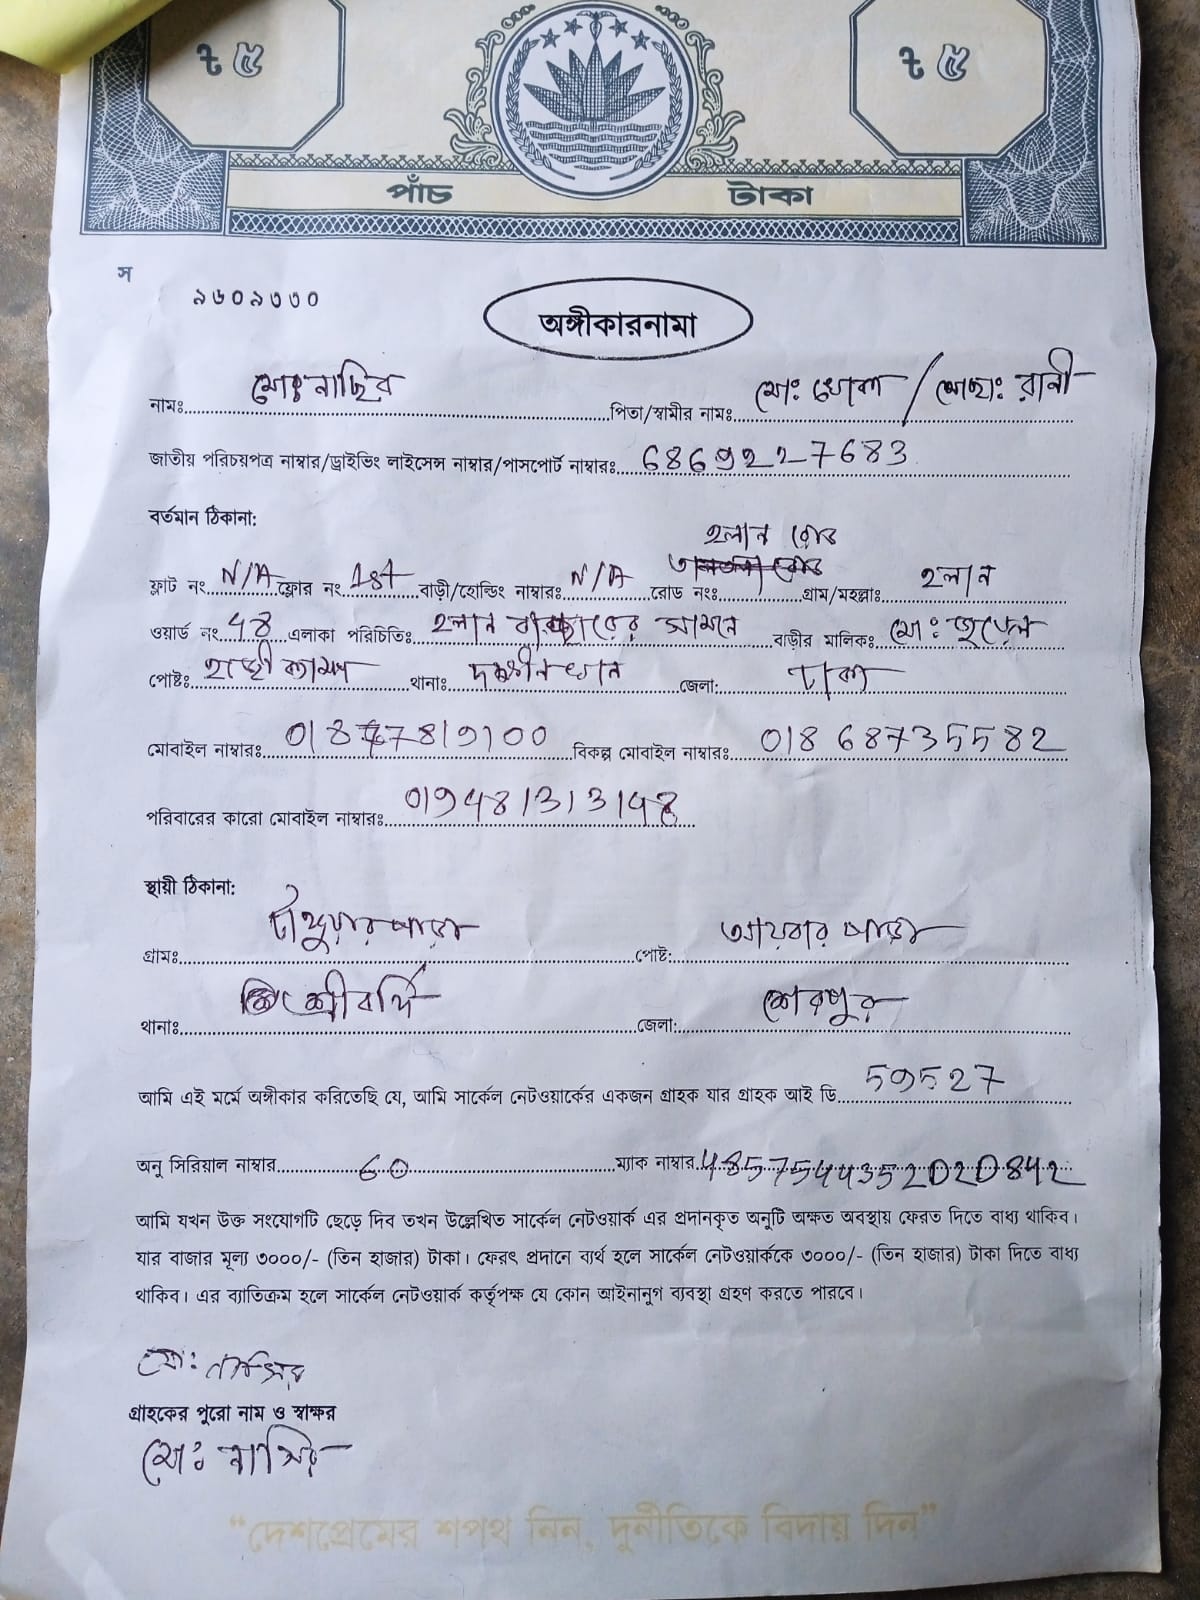 ৳ ৫ ৳ ৫
পাঁচ টাকা
স
৯৬০৯৩৩০
অঙ্গীকারনামা
নামঃ মোঃ নাছির পিতা/স্বামীর নামঃ মোঃ / মোছাঃ রানী
জাতীয় পরিচয়পত্র নাম্বার/ড্রাইভিং লাইসেন্স নাম্বার/পাসপোর্ট নাম্বারঃ 6869227683
বর্তমান ঠিকানা:
হলান রোড
ফ্লাট নং N/A ফ্লোর নং 1st বাড়ী/হোল্ডিং নাম্বারঃ N/A রোড নংঃ গ্রাম/মহল্লাঃ হলান
ওয়ার্ড নং 48 এলাকা পরিচিতিঃ হলান বাজারের সামনে বাড়ীর মালিকঃ মোঃ জুয়েল
পোষ্টঃ থানাঃ দক্ষীনখান জেলা: ঢাকা
মোবাইল নাম্বারঃ বিকল্প মোবাইল নাম্বারঃ 01868735582
পরিবারের কারো মোবাইল নাম্বারঃ 019481313148
স্থায়ী ঠিকানা:
গ্রামঃ পোষ্ট:
থানাঃ শ্রীবর্দি জেলা: শেরপুর
আমি এই মর্মে অঙ্গীকার করিতেছি যে, আমি সার্কেল নেটওয়ার্কের একজন গ্রাহক যার গ্রাহক আই ডি 59527
অনু সিরিয়াল নাম্বার 60 ম্যাক নাম্বার 4857544352D20842
আমি যখন উক্ত সংযোগটি ছেড়ে দিব তখন উল্লেখিত সার্কেল নেটওয়ার্ক এর প্রদানকৃত অনুটি অক্ষত অবস্থায় ফেরত দিতে বাধ্য থাকিব।
যার বাজার মূল্য ৩০০০/- (তিন হাজার) টাকা। ফেরৎ প্রদানে ব্যর্থ হলে সার্কেল নেটওয়ার্ককে ৩০০০/- (তিন হাজার) টাকা দিতে বাধ্য
থাকিব। এর ব্যতিক্রম হলে সার্কেল নেটওয়ার্ক কর্তৃপক্ষ যে কোন আইনানুগ ব্যবস্থা গ্রহণ করতে পারবে।
মোঃ নাসির
গ্রাহকের পুরো নাম ও স্বাক্ষর
মোঃ নাসির
“দেশপ্রেমের শপথ নিন, দুর্নীতিকে বিদায় দিন”